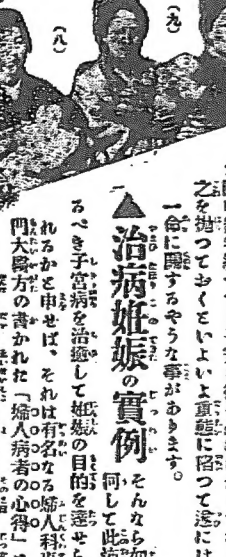 (九)
(八)
之を抛つておくといよいよ重態に陥つて遂には
一命に関するやうな事があります。
▲治病妊娠の實例
そんなら如
何して此
るべき子宮病を治癒して妊娠の目的を達せら
れるかと申せば、それは有名なる婦人科専
門大醫方の書かれた「婦人病者の心得」